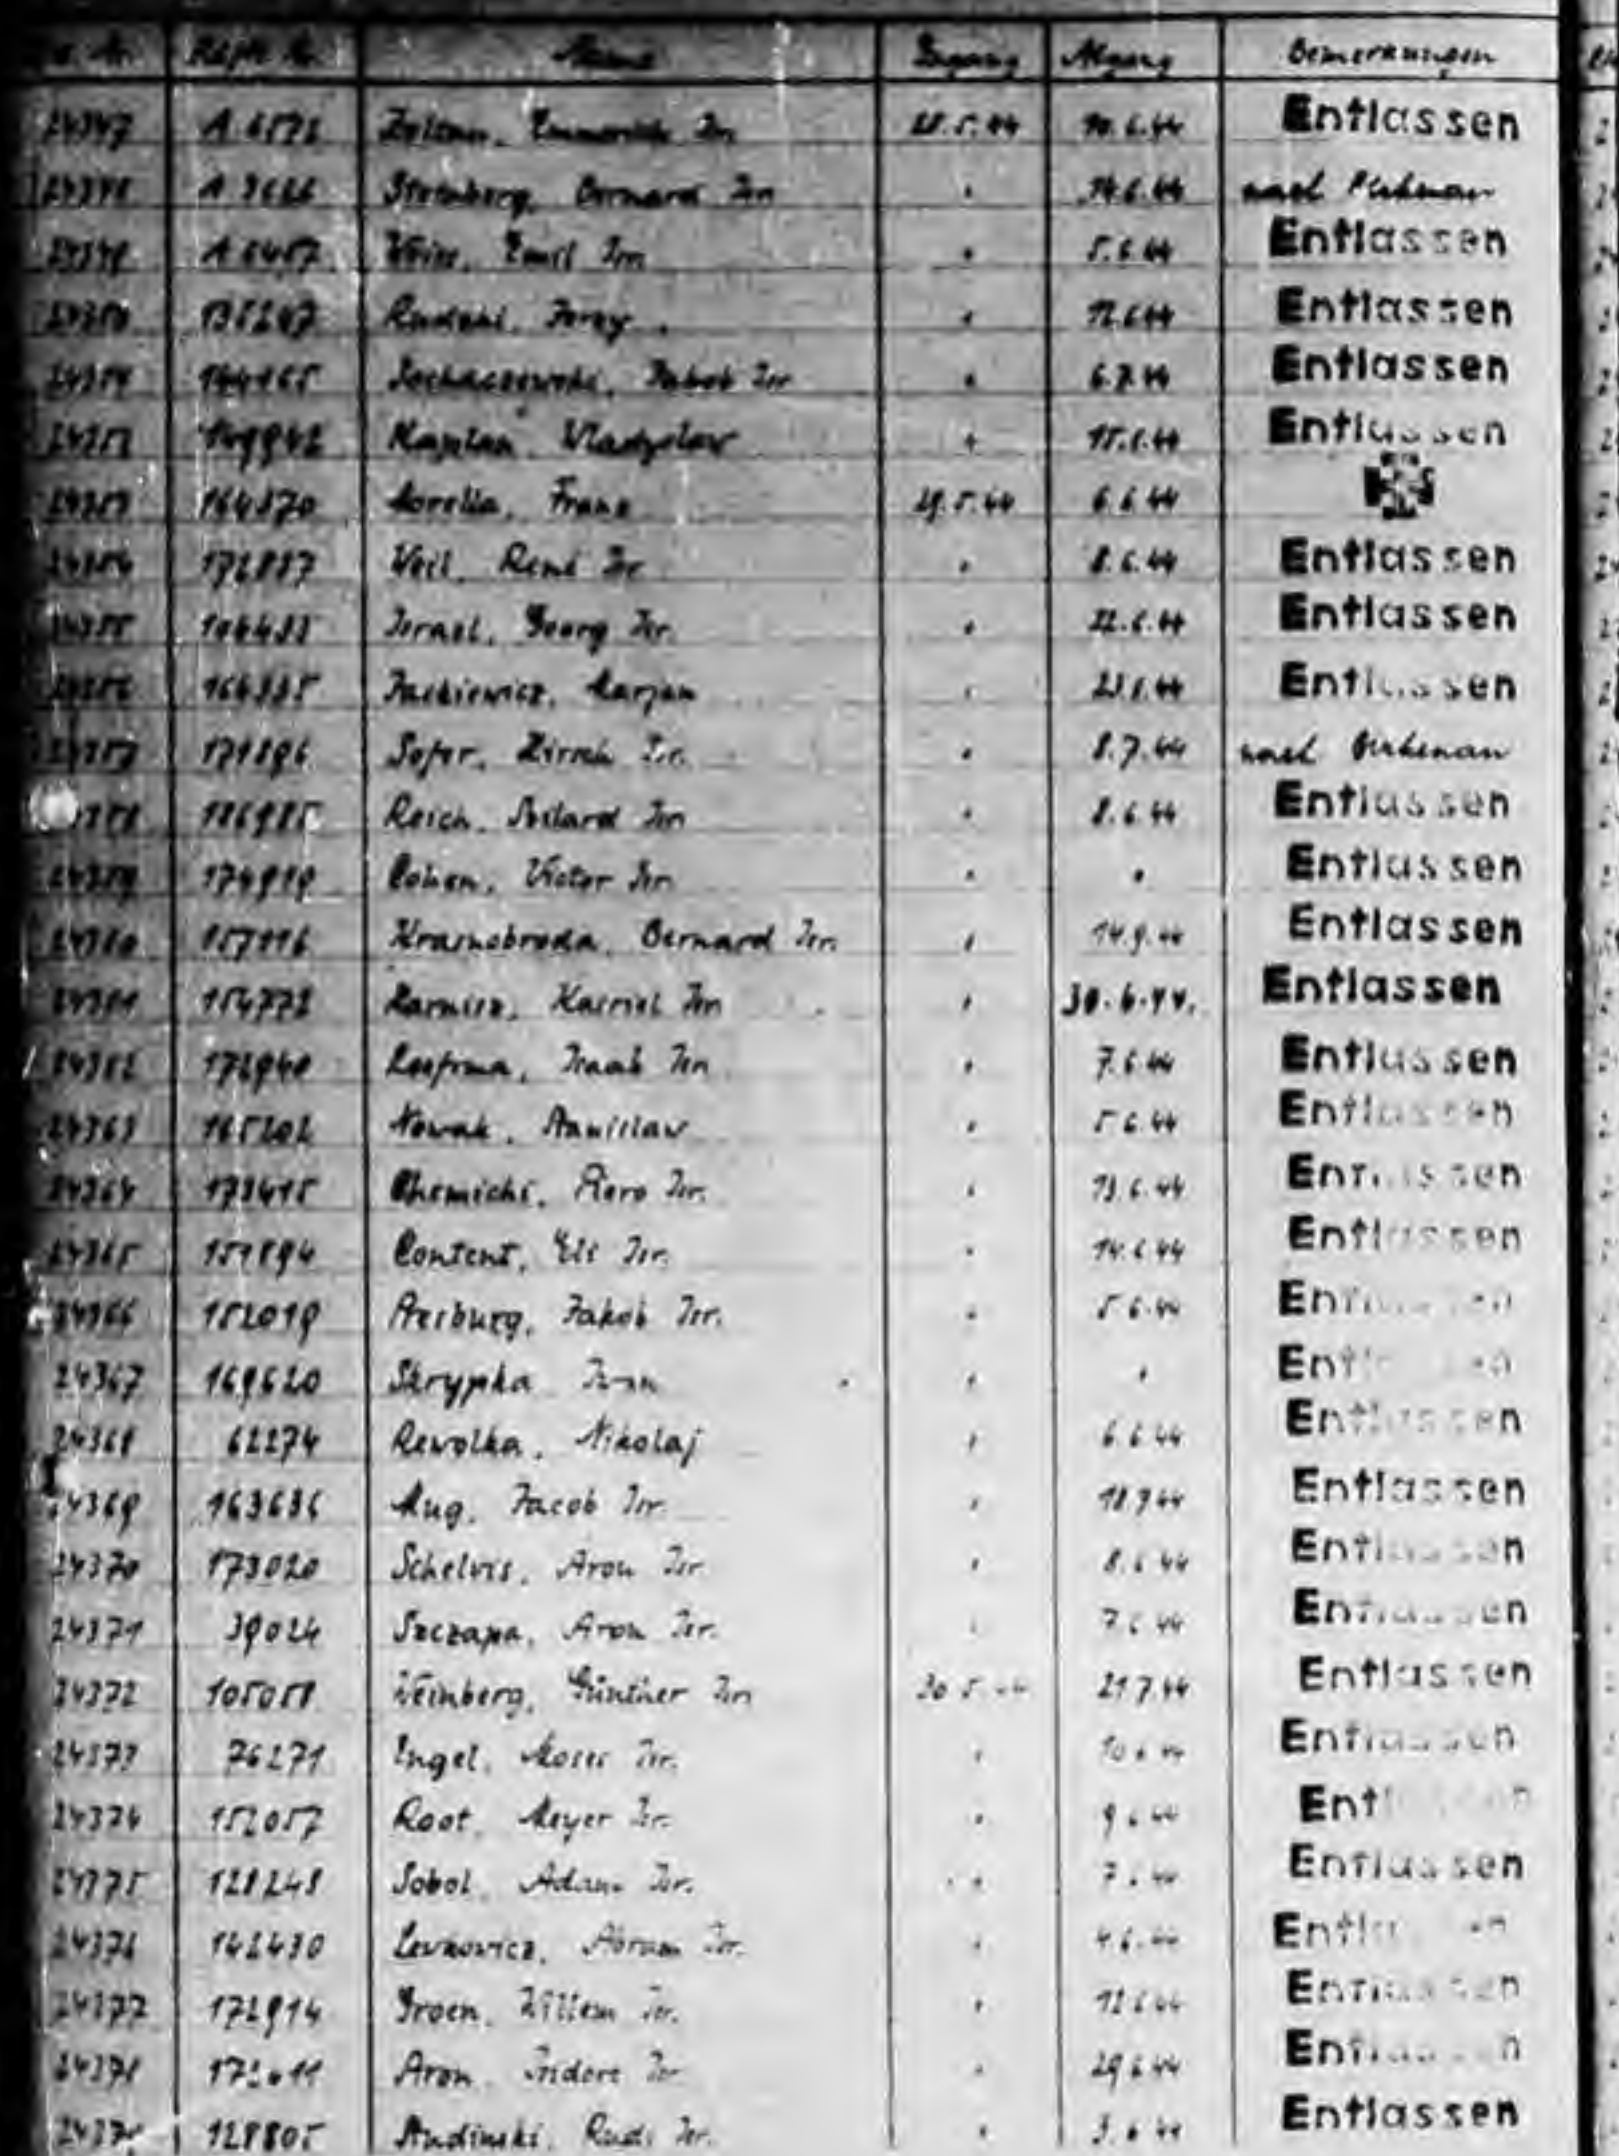 Häftl. Nr. Name Zugang Abgang Bemerkungen
24347 A 6572 Emmerich Isr. 28.5.44 10.6.44 Entlassen
24348 Steinberg, Bernard Isr. " 14.6.44 nach Birkenau
24349 Weiss, Emil Isr. " 5.6.44 Entlassen
24350 135247 " 12.6.44 Entlassen
24351 144165 Sochaczewski, Jakob Isr. " 6.7.44 Entlassen
24352 149942 Kaplan, Wladyslaw " 15.6.44 Entlassen
24353 164370 Morella, Franz 29.5.44 6.6.44
24354 172887 Weil, René Isr. " 8.6.44 Entlassen
24355 Israel, Georg Isr. " 22.6.44 Entlassen
24356 Marjan " 23.6.44 Entlassen
24357 171896 Sofer, Hirsch Isr. " 8.7.44 nach Birkenau
24358 186985 Reich, Isr. " 8.6.44 Entlassen
24359 174919 Cohen, Victor Isr. " " Entlassen
24360 157116 Krasnobroda, Bernard Isr. " 14.9.44 Entlassen
24361 154772 Isr. " 30.6.44. Entlassen
24362 172940 Isaak Isr. " 7.6.44 Entlassen
24363 165202 Nowak, Stanislaw " 5.6.44 Entlassen
24364 173415 Piero Isr. " 13.6.44 Entlassen
24365 151894 Content, Eli Isr. " 14.6.44 Entlassen
24366 152019 Jakob Isr. " 5.6.44 Entlassen
24367 169620 Skrypka Iwan " " Entlassen
24368 62274 Rewolka, Nikolaj " 6.6.44 Entlassen
24369 163636 Mug, Jacob Isr. " 18.7.44 Entlassen
24370 173020 Schelvis, Aron Isr. " 8.6.44 Entlassen
24371 39024 Szczapa, Aron Isr. " 7.6.44 Entlassen
24372 105058 Weinberg, Günther Isr. 30.5.44 21.7.44 Entlassen
24373 76271 Engel, Moses Isr. " 10.6.44 Entlassen
24374 152057 Root, Meyer Isr. " 9.6.44 Entlassen
24375 128248 Sobol, Adam Isr. " 7.6.44 Entlassen
24376 142430 Lewkowicz, Abram Isr. " 4.6.44 Entlassen
24377 172914 Groen, Willem Isr. " 12.6.44 Entlassen
24378 Aron, Isidore Isr. " 29.6.44 Entlassen
128805 Rudi Isr. " 3.6.44 Entlassen